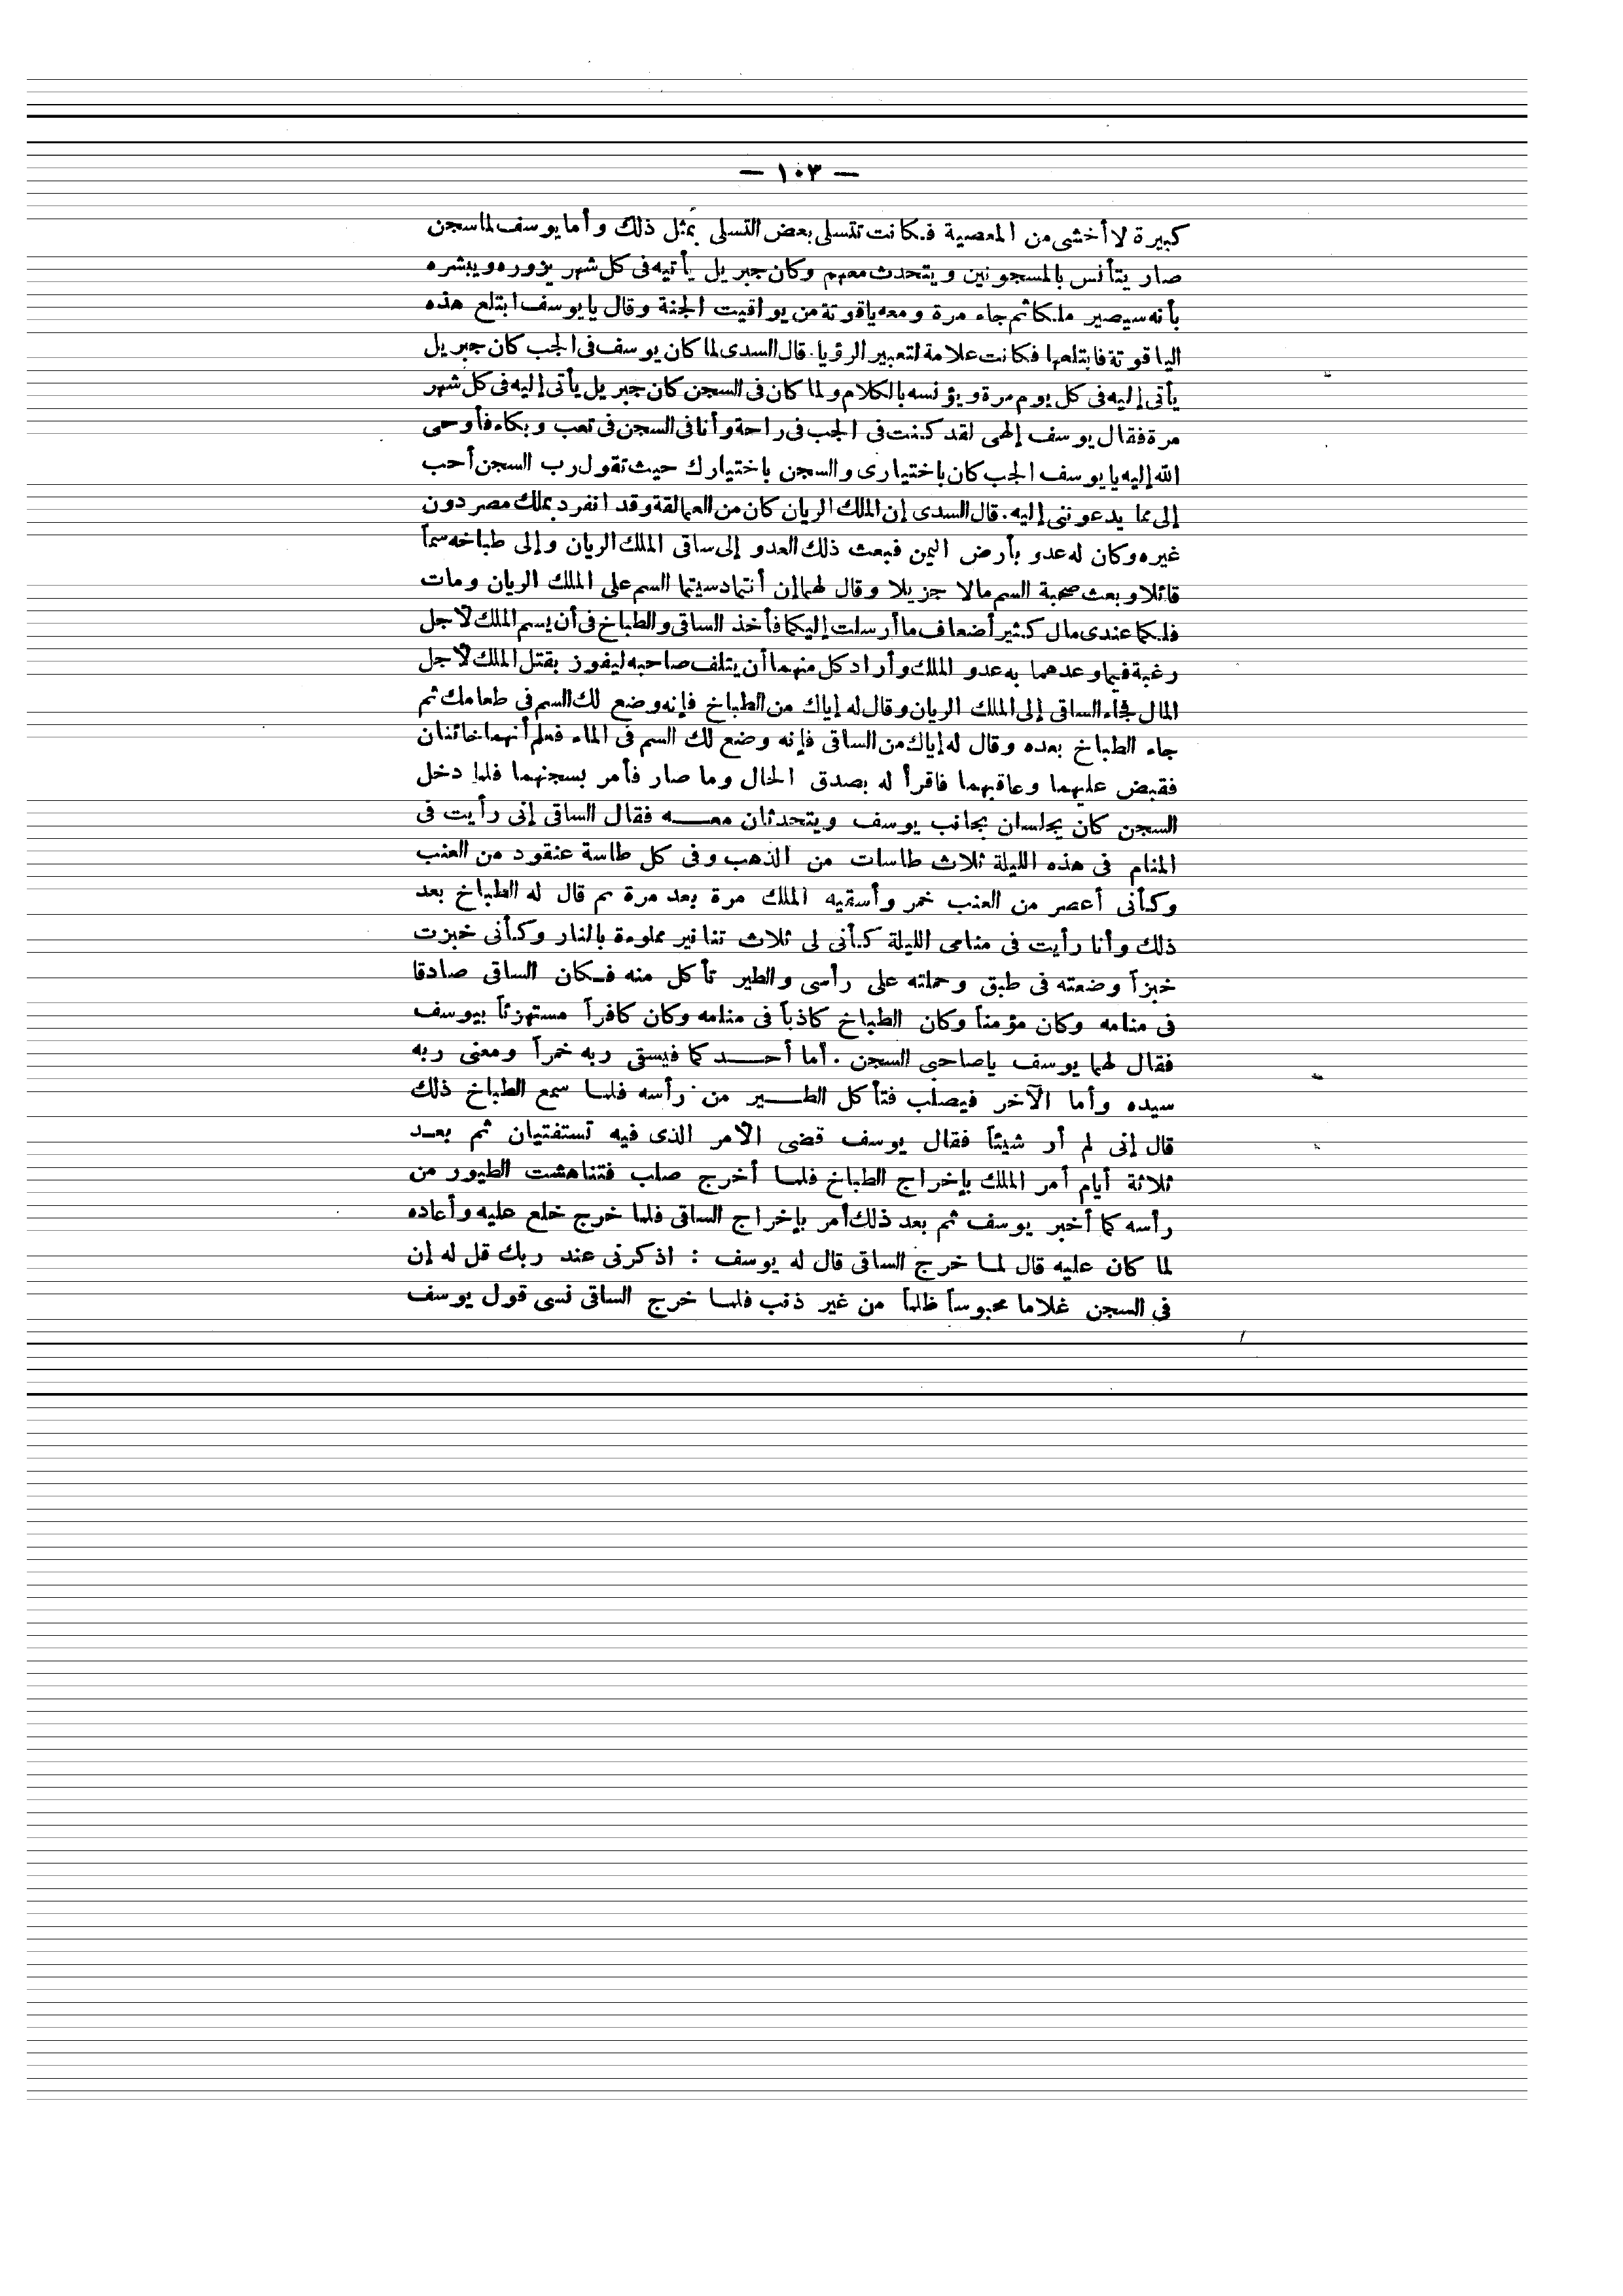 — ١٠٣ —
كبيرة لا أخشى من المعصية فكانت تتسلى بعض التسلى بمثل ذلك وأما يوسف لما سجن
صار يتأنس بالمسجونين ويتحدث معهم وكان جبريل يأتيه فى كل شهر يزوره ويبشره
بأنه سيصير ملكا ثم جاء مرة ومعه ياقوتة من يواقيت الجنة وقال يا يوسف ابتلع هذه
الياقوتة فابتلعها فكانت علامة لتعبير الرؤيا. قال السدى لما كان يوسف فى الجب كان جبريل
يأتى إليه فى كل يوم مرة ويؤنسه بالكلام ولما كان فى السجن كان جبريل يأتى إليه فى كل شهر
مرة فقال يوسف إلهى لقد كنت فى الجب فى راحة وأنا فى السجن فى تعب وبكاء فأوحى
الله إليه يا يوسف الجب كان باختيارى والسجن باختيارك حيث تقول رب السجن أحب
إلى مما يدعوننى إليه. قال السدى إن الملك الريان كان من العمالقة وقد انفرد بملك مصر دون
غيره وكان له عدو بأرض اليمن فبعث ذلك العدو إلى ساقى الملك الريان وإلى طباخه سماً
قائلا وبعث صحبة السم مالا جزيلا وقال لهما إن أنتما دسيتما السم على الملك الريان ومات
فلكما عندى مال كثير أضعاف ما أرسلت إليكما فأخذ الساقى والطباخ فى أن يسم الملك لأجل
رغبة فيما وعدهما به عدو الملك وأراد كل منهما أن يتلف صاحبه ليفوز بقتل الملك لأجل
المال فجاء الساقى إلى الملك الريان وقال له إياك من الطباخ فإنه وضع لك السم فى طعامك ثم
جاء الطباخ بعده وقال له إياك من الساقى فإنه وضع لك السم فى الماء فعلم أنهما خائنان
فقبض عليهما وعاقبهما فاقرأ له بصدق الحال وما صار فأمر بسجنهما فلما دخل
السجن كان يجلسان بجانب يوسف ويتحدثان معـــه فقال الساقى إنى رأيت فى
المنام فى هذه الليلة ثلاث طاسات من الذهب وفى كل طاسة عنقود من العنب
وكأنى أعصر من العنب خمر وأسقيه الملك مرة بعد مرة ثم قال له الطباخ بعد
ذلك وأنا رأيت فى منامى الليلة كأنى لى ثلاث تنانير مملوءة بالنار وكأنى خبزت
خبزاً وضعته فى طبق وحملته على رأسى والطير تأكل منه فكان الساقى صادقا
فى منامه وكان مؤمناً وكان الطباخ كاذباً فى منامه وكان كافراً مستهزئاً بيوسف
فقال لهما يوسف ياصاحبى السجن . أما أحـــدكما فيسقى ربه خمراً ومعنى ربه
سيده وأما الآخر فيصلب فتأكل الطـــير من رأسه فلما سمع الطباخ ذلك
قال إنى لم أر شيئاً فقال يوسف قضى الأمر الذى فيه تستفتيان ثم بعـد
ثلاثة أيام أمر الملك بإخراج الطباخ فلما أخرج صلب فتناهشت الطيور من
رأسه كما أخبر يوسف ثم بعد ذلك أمر بإخراج الساقى فلما خرج خلع عليه وأعاده
لما كان عليه قال لما خرج الساقى قال له يوسف : اذكرنى عند ربك قل له إن
فى السجن غلاما محبوساً ظلماً من غير ذنب فلما خرج الساقى نسى قول يوسف